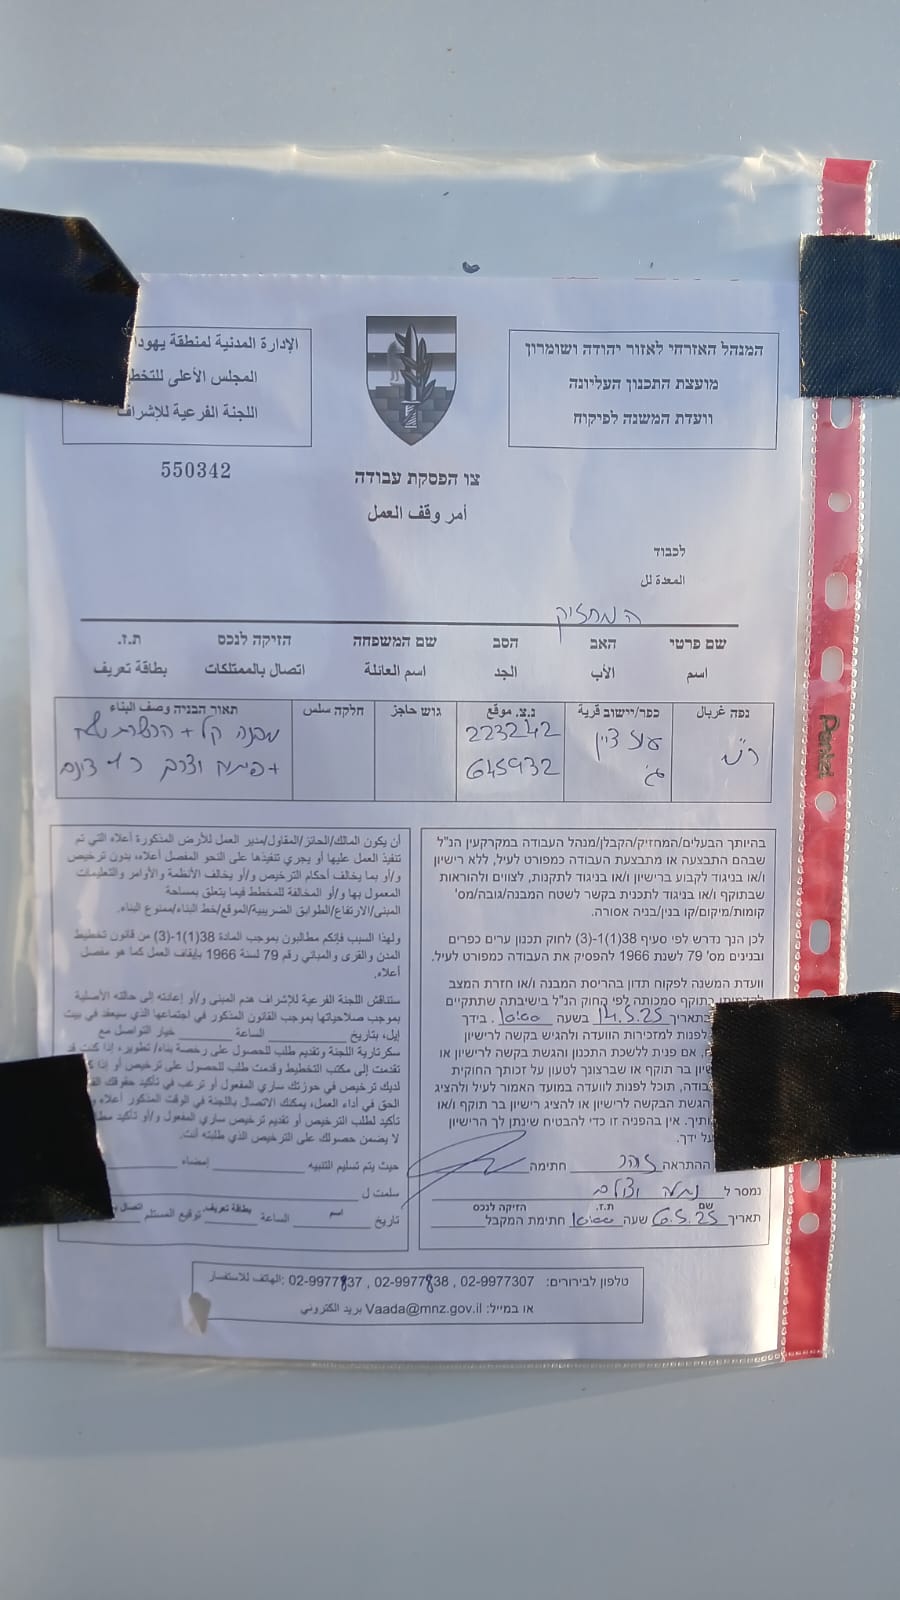 המנהל האזרחי לאזור יהודה ושומרון
מועצת התכנון העליונה
וועדת המשנה לפיקוח
الإدارة المدنية لمنطقة يهودا
المجلس الأعلى للتخط
اللجنة الفرعية للإشراف
550342
צו הפסקת עבודה
أمر وقف العمل
לכבוד
המעדة لل
המחזיק
שם פרטי האב הסב שם המשפחה הזיקה לנכס ת.ז.
اسم الأب الجد اسم العائلة اتصال بالممتلكات بطاقة تعريف
נפה غربال כפר/יישוב قرية נ.צ. מוقع גוש حاجز חלקה سلس תאור הבניה وصف البناء
223242
645932
מבנה קל + הכשרת שטח
ג'
בהיותך הבעלים/המחזיק/הקבלן/מנהל העבודה במקרקעין הנ"ל
שבהם התבצעה או מתבצעת העבודה כמפורט לעיל, ללא רישיון
ו/או בניגוד לקבוע ברישיון ו/או בניגוד לתקנות, לצווים ולהוראות
שבתוקף ו/או בניגוד לתכנית בקשר לשטח המבנה/גובה/מס'
קומות/מיקום/קו בנין/בניה אסורה.
לכן הנך נדרש לפי סעיף 38(1)(1-3) לחוק תכנון ערים כפרים
ובנינים מס' 79 לשנת 1966 להפסיק את העבודה כמפורט לעיל.
וועדת המשנה לפקוח תדון בהריסת המבנה ו/או חזרת המצב
לקדמותו בתוקף סמכותה לפי החוק הנ"ל בישיבתה שתתקיים
בתאריך 14.5.25 בשעה 10:00. בידך
לפנות למזכירות הוועדה ולהגיש בקשה לרישיון
אם פנית ללשכת התכנון והגשת בקשה לרישיון או
בר תוקף או שברצונך לטעון על זכותך החוקית
תוכל לפנות לוועדה במועד האמור לעיל ולהציג
הגשת הבקשה לרישיון או להציג רישיון בר תוקף ו/או
אין בהפניה זו כדי להבטיח שינתן לך הרישיון
על ידך.
ההתראה זוהר חתימה
נמסר ל
שם ת.ז. הזיקה לנכס
תאריך 6.5.25 שעה 10:00 חתימת המקבל
أن يكون المالك/الحائز/المقاول/مدير العمل للأرض المذكورة أعلاه التي تم
تنفيذ العمل عليها أو يجري تنفيذها على النحو المفصل أعلاه، بدون ترخيص
و/أو بما يخالف أحكام الترخيص و/أو يخالف الأنظمة والأوامر والتعليمات
المعمول بها و/أو المخالفة للمخطط فيما يتعلق بمساحة
المبنى/الارتفاع/الطوابق الضريبية/الموقع/خط البناء/ممنوع البناء.
ولهذا السبب فإنكم مطالبون بموجب المادة 38(1)(1-3) من قانون تخطيط
المدن والقرى والمباني رقم 79 لسنة 1966 بإيقاف العمل كما هو مفصل
أعلاه.
ستناقش اللجنة الفرعية للإشراف هدم المبنى و/أو إعادته إلى حالته الأصلية
بموجب صلاحياتها بموجب القانون المذكور في اجتماعها الذي سيعقد في بيت
إيل، بتاريخ الساعة خيار التواصل مع
سكرتارية اللجنة وتقديم طلب للحصول على رخصة بناء/ تطوير، إذا كنت قد
تقدمت إلى مكتب التخطيط وقدمت طلب للحصول على ترخيص أو إذا
لديك ترخيص في حوزتك ساري المفعول أو ترغب في تأكيد حقوقك
الحق في أداء العمل، يمكنك الاتصال باللجنة في الوقت المذكور أعلاه
تأكيد لطلب الترخيص أو تقديم ترخيص ساري المفعول و/أو تأكيد
لا يضمن حصولك على الترخيص الذي طلبته أنت.
حيث يتم تسليم التنبيه إمضاء
سلمت ل
اسم بطاقة تعريف
تاريخ الساعة توقيع المستلم
טלפון לבירורים: 02-9977307 , 02-9977838 , 02-9977837 :الهاتف للاستفسار
או במייל: Vaada@mnz.gov.il بريد الكتروني